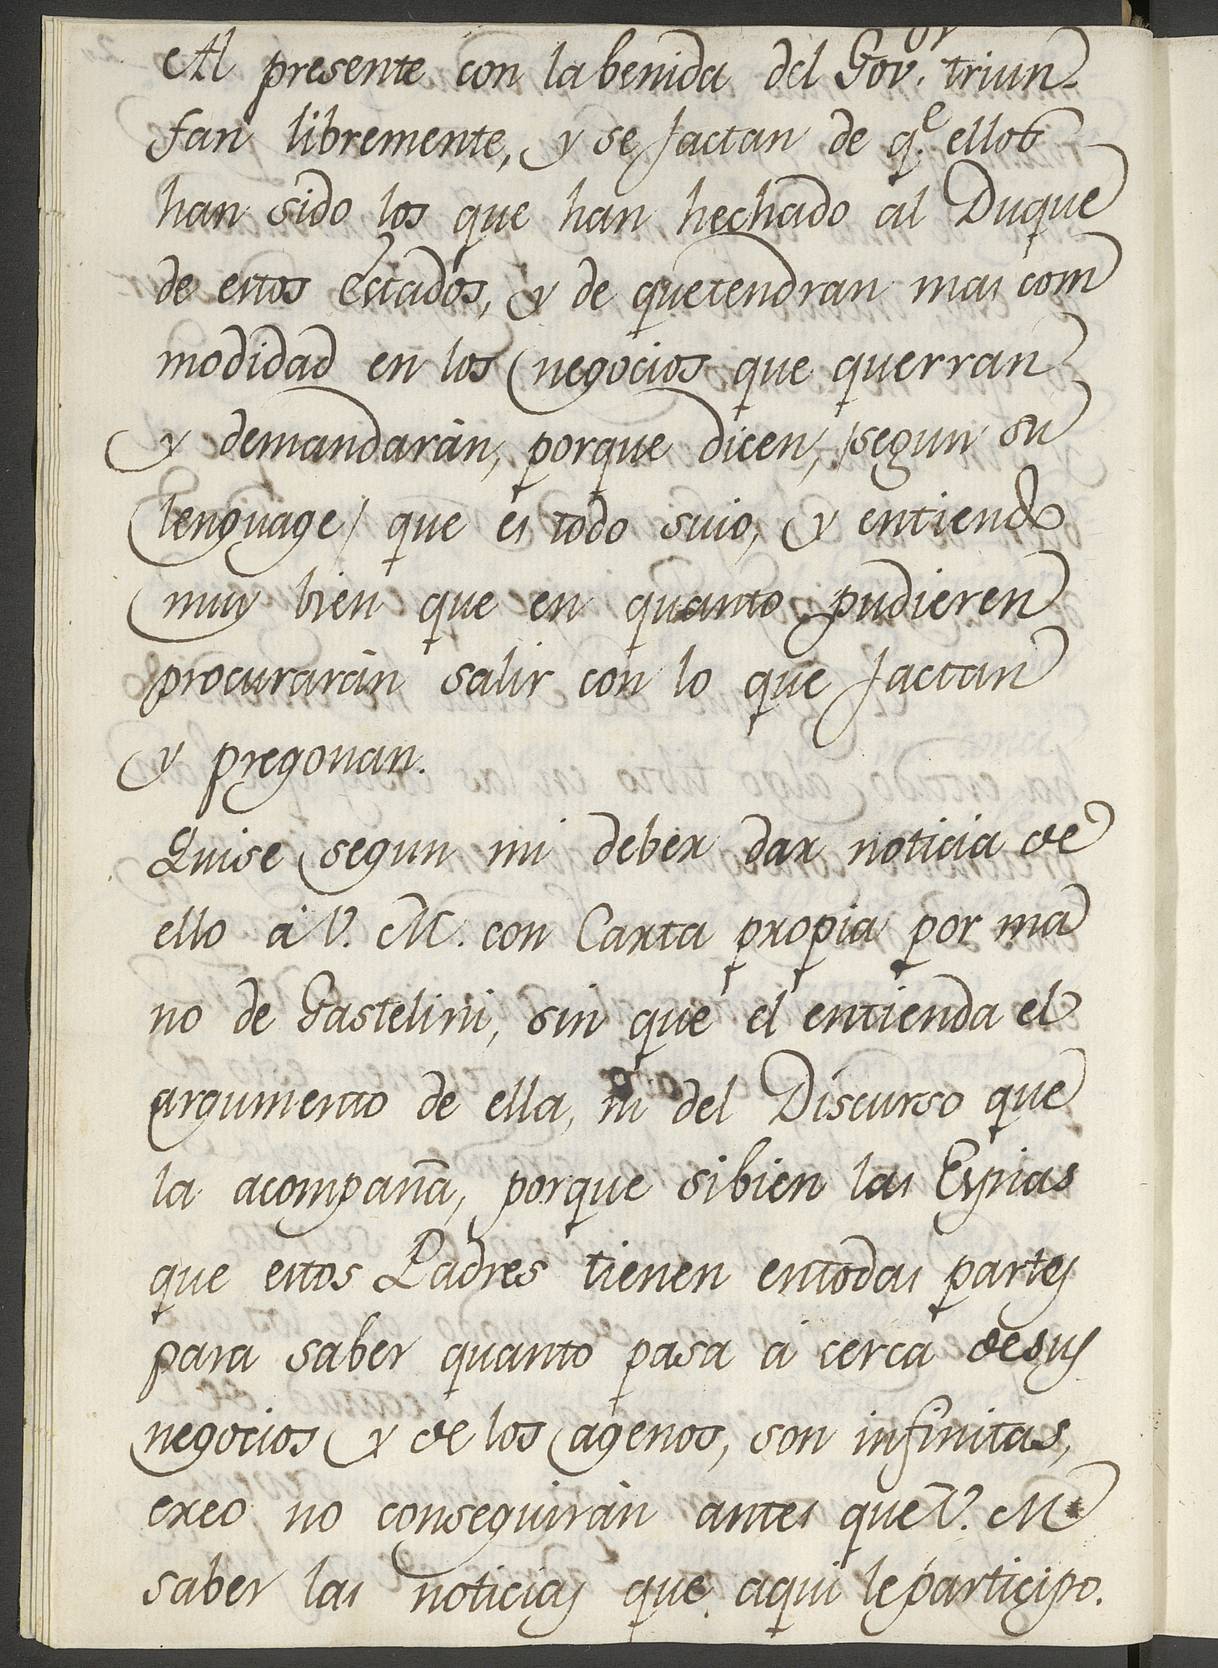 Al presente con la benida del Gov.or triun-
fan libremente, y se jactan de q.e ellos
han sido los que han hechado al Duque
de estos Estados, y de que tendran mas com
modidad en los negocios que querran
y demandaràn, porque dicen, /segun su
lenguage/ que es todo suio, y entiendo
muy bien que en quanto pudieren
procuraràn salir con lo que jactan
y pregonan.
Quise segun mi deber dar noticia de
ello à V. M. con Carta propia por ma
no de Gastelini, sin que el entienda el
argumento de ella, ni del Discurso que
la acompaña, porque sibien las Espias
que estos Padres tienen entodas partes
para saber quanto pasa à cerca desus
negocios y de los agenos, son infinitas,
creo no conseguiràn antes que V. M.
saber las noticias que aqui le participo.